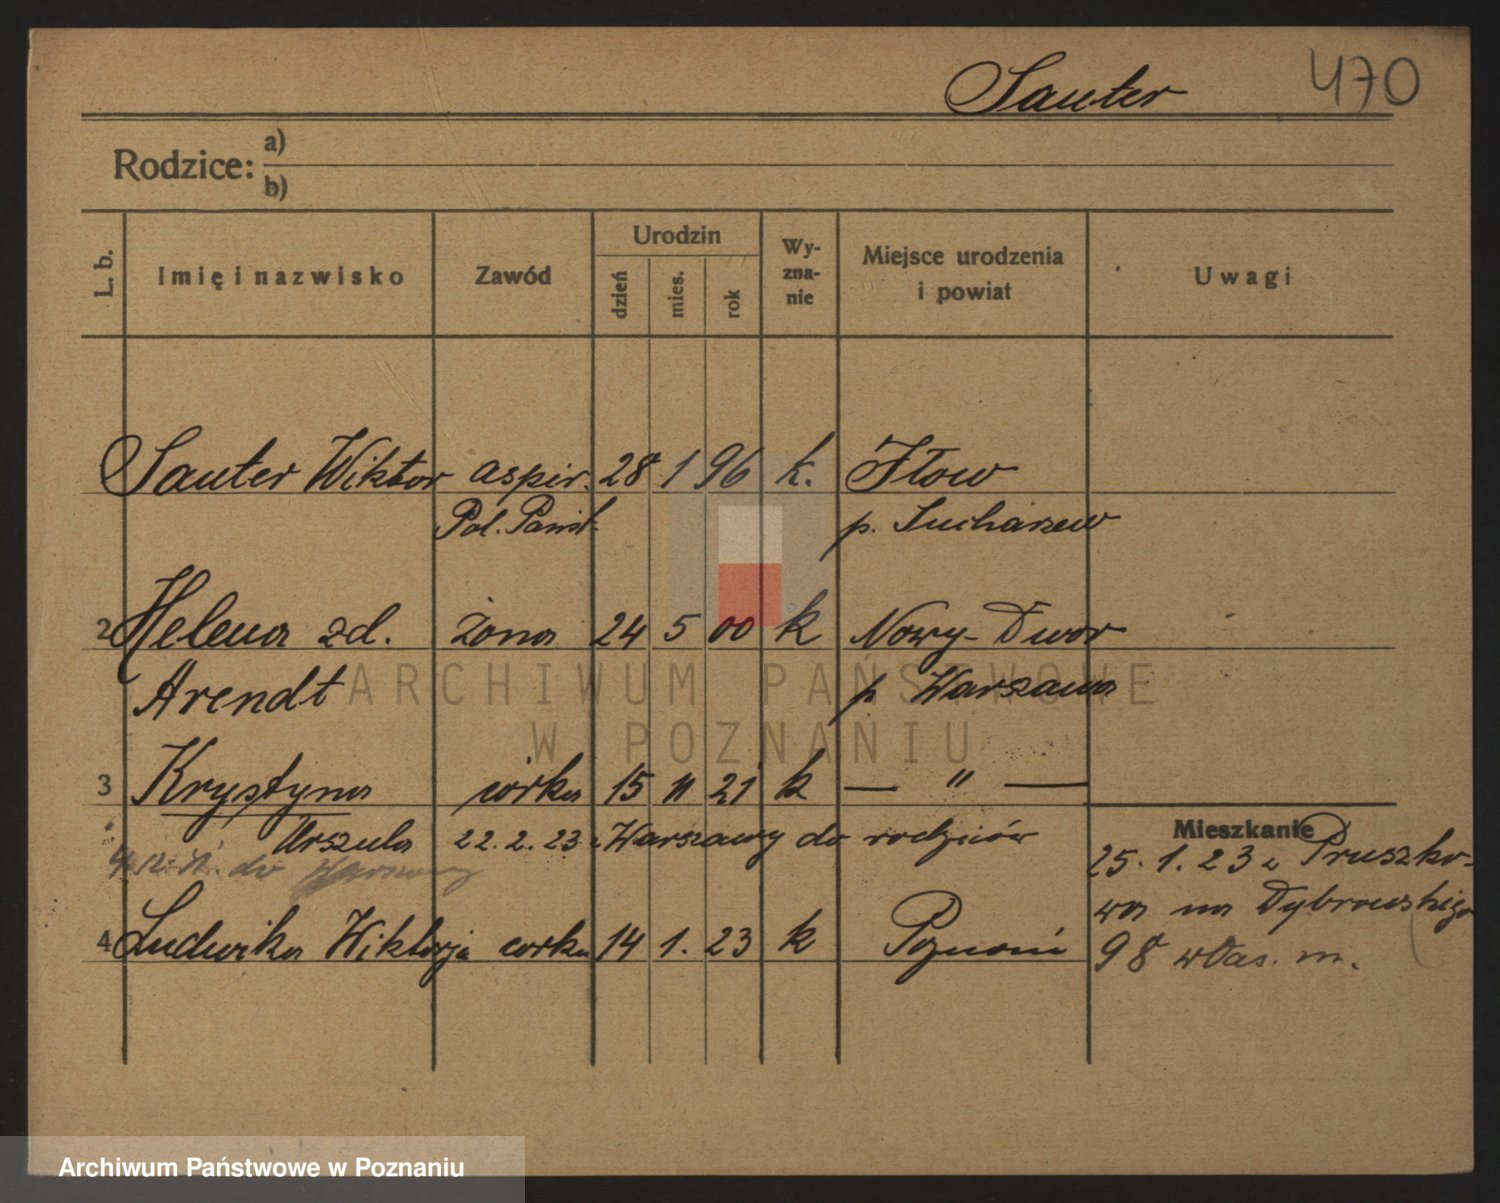 Sauter 470
Rodzice: a)
b)
L. b. Imię i nazwisko Zawód Urodzin dzień mies. rok Wyznanie Miejsce urodzenia i powiat Uwagi
Sauter Wiktor aspir. 28 1 96 k. Iłow
Pol. Państ. p. Sucharzew
2 Helena zd. żona 24 5 00 k Nowy-Dwor
Arendt p. Warszawa
3 Krystyna córka 15 11 21 k — " —
Mieszkanie
Urszula 22.2.23 z Warszawy do rodziców
25.1.23 z Pruszko-
do
wa na Dąbrowskiego
4 Ludwika Wiktorja corka 14 1. 23 k Poznań
98 włas. m.
ARCHIWUM PAŃSTWOWE
W POZNANIU
Archiwum Państwowe w Poznaniu